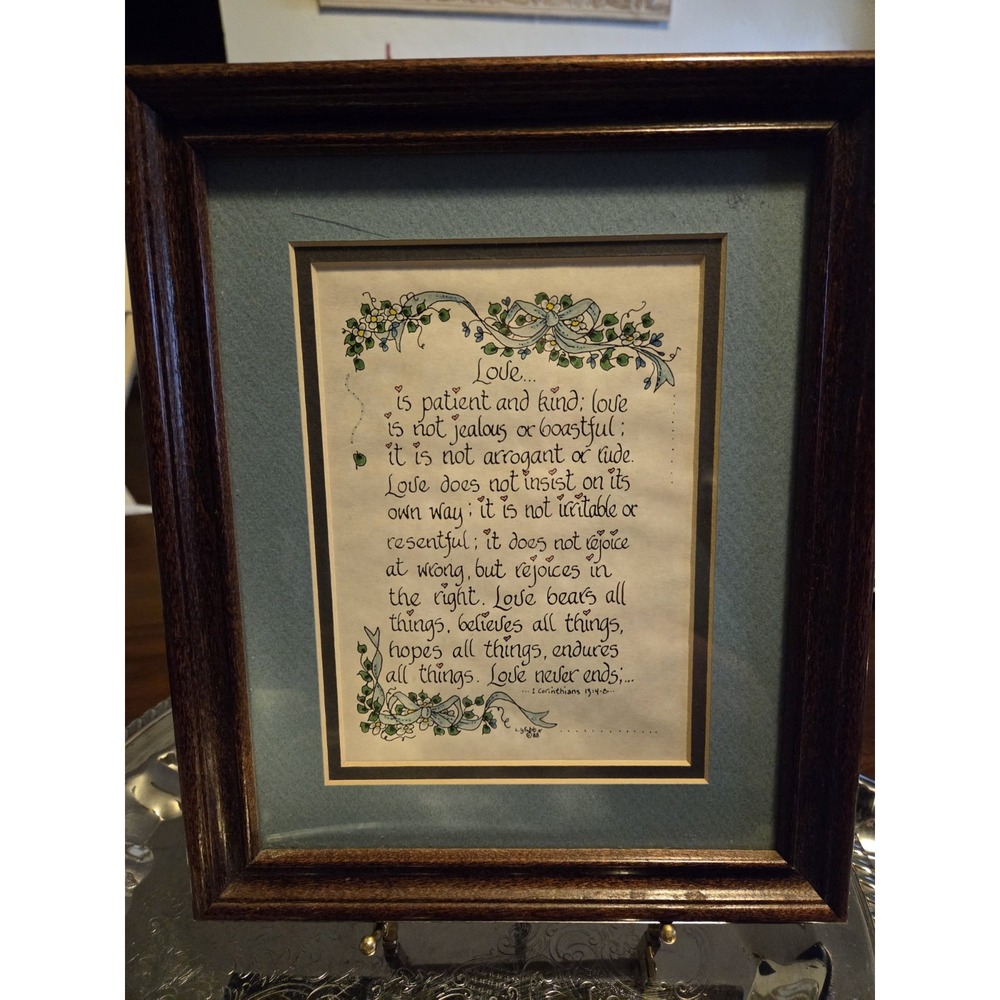 Love...
is patient and kind; love
is not jealous or boastful;
it is not arrogant or rude.
Love does not insist on its
own way; it is not irritable or
resentful; it does not rejoice
at wrong, but rejoices in
the right. Love bears all
things, believes all things,
hopes all things, endures
all things. Love never ends;...
...1 Corinthians 13:4-8...
©88